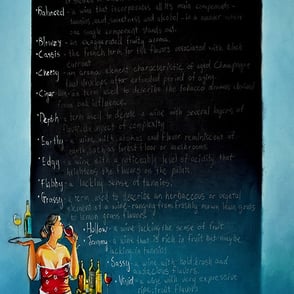 • Balanced - a wine that incorporates all its main components -
tannins, acid, sweetness and alcohol - in a manner where
one single component stands out.
• Blowzy - an exaggerated fruity aroma.
• Cassis - the french term for the flavors associated with black
currant
• Cheesy - an aroma element characteristic of aged Champagne
that develops after extended period of aging.
• Cigar - a term used to describe the tobacco aromas derived
from oak influence.
• Depth - a term used to denote a wine with several layers of
flavor. An aspect of complexity
• Earthy - a wine with aromas and flavor reminiscent of
earth, such as forest floor or mushrooms.
• Edgy - a wine with a noticeably level of acidity that
heightens the flavors on the palate.
• Flabby - a lacking sense of tannins.
• Grassy - a term used to describe an herbaceous or vegetal
element of a wine - ranging from freshly mown lawn grass
to lemon grass flavors.
• Hollow - a wine lacking the sense of fruit.
• Jammy - a wine that is rich in fruit but maybe
lacking in tannins
• Sassy - a wine with bold brash and
audacious flavors.
• Vivid - a wine with very expressive
ripe, fruit flavors